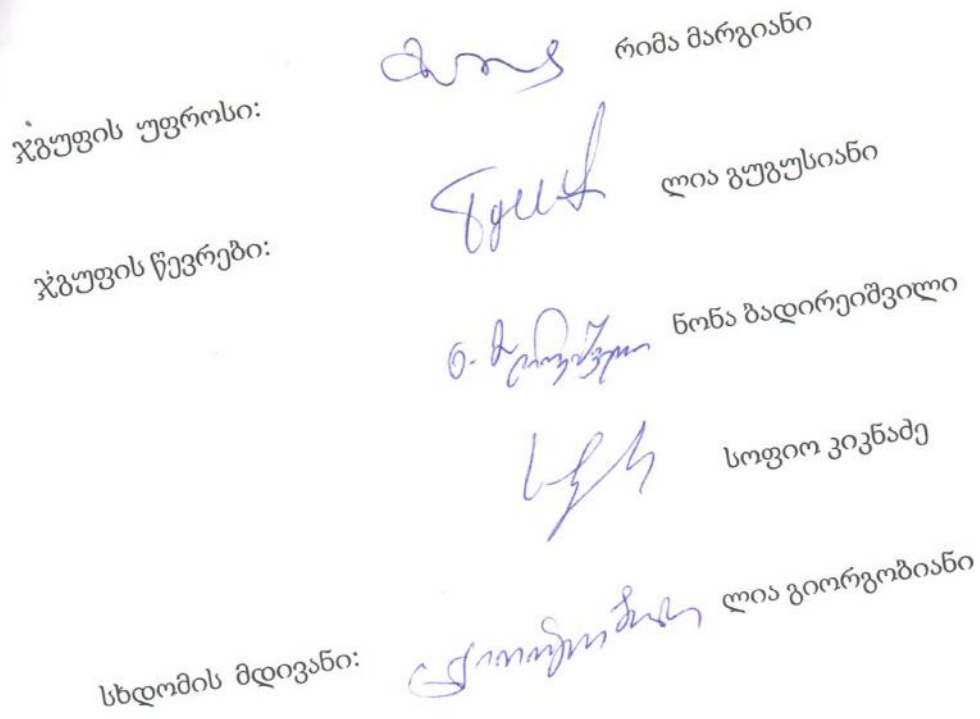 ჯგუფის უფროსი: რიმა მარგიანი
ჯგუფის წევრები: ლია გუგუსიანი
ნონა ბადირეიშვილი
სოფიო კიკნაძე
სხდომის მდივანი: ლია გიორგობიანი